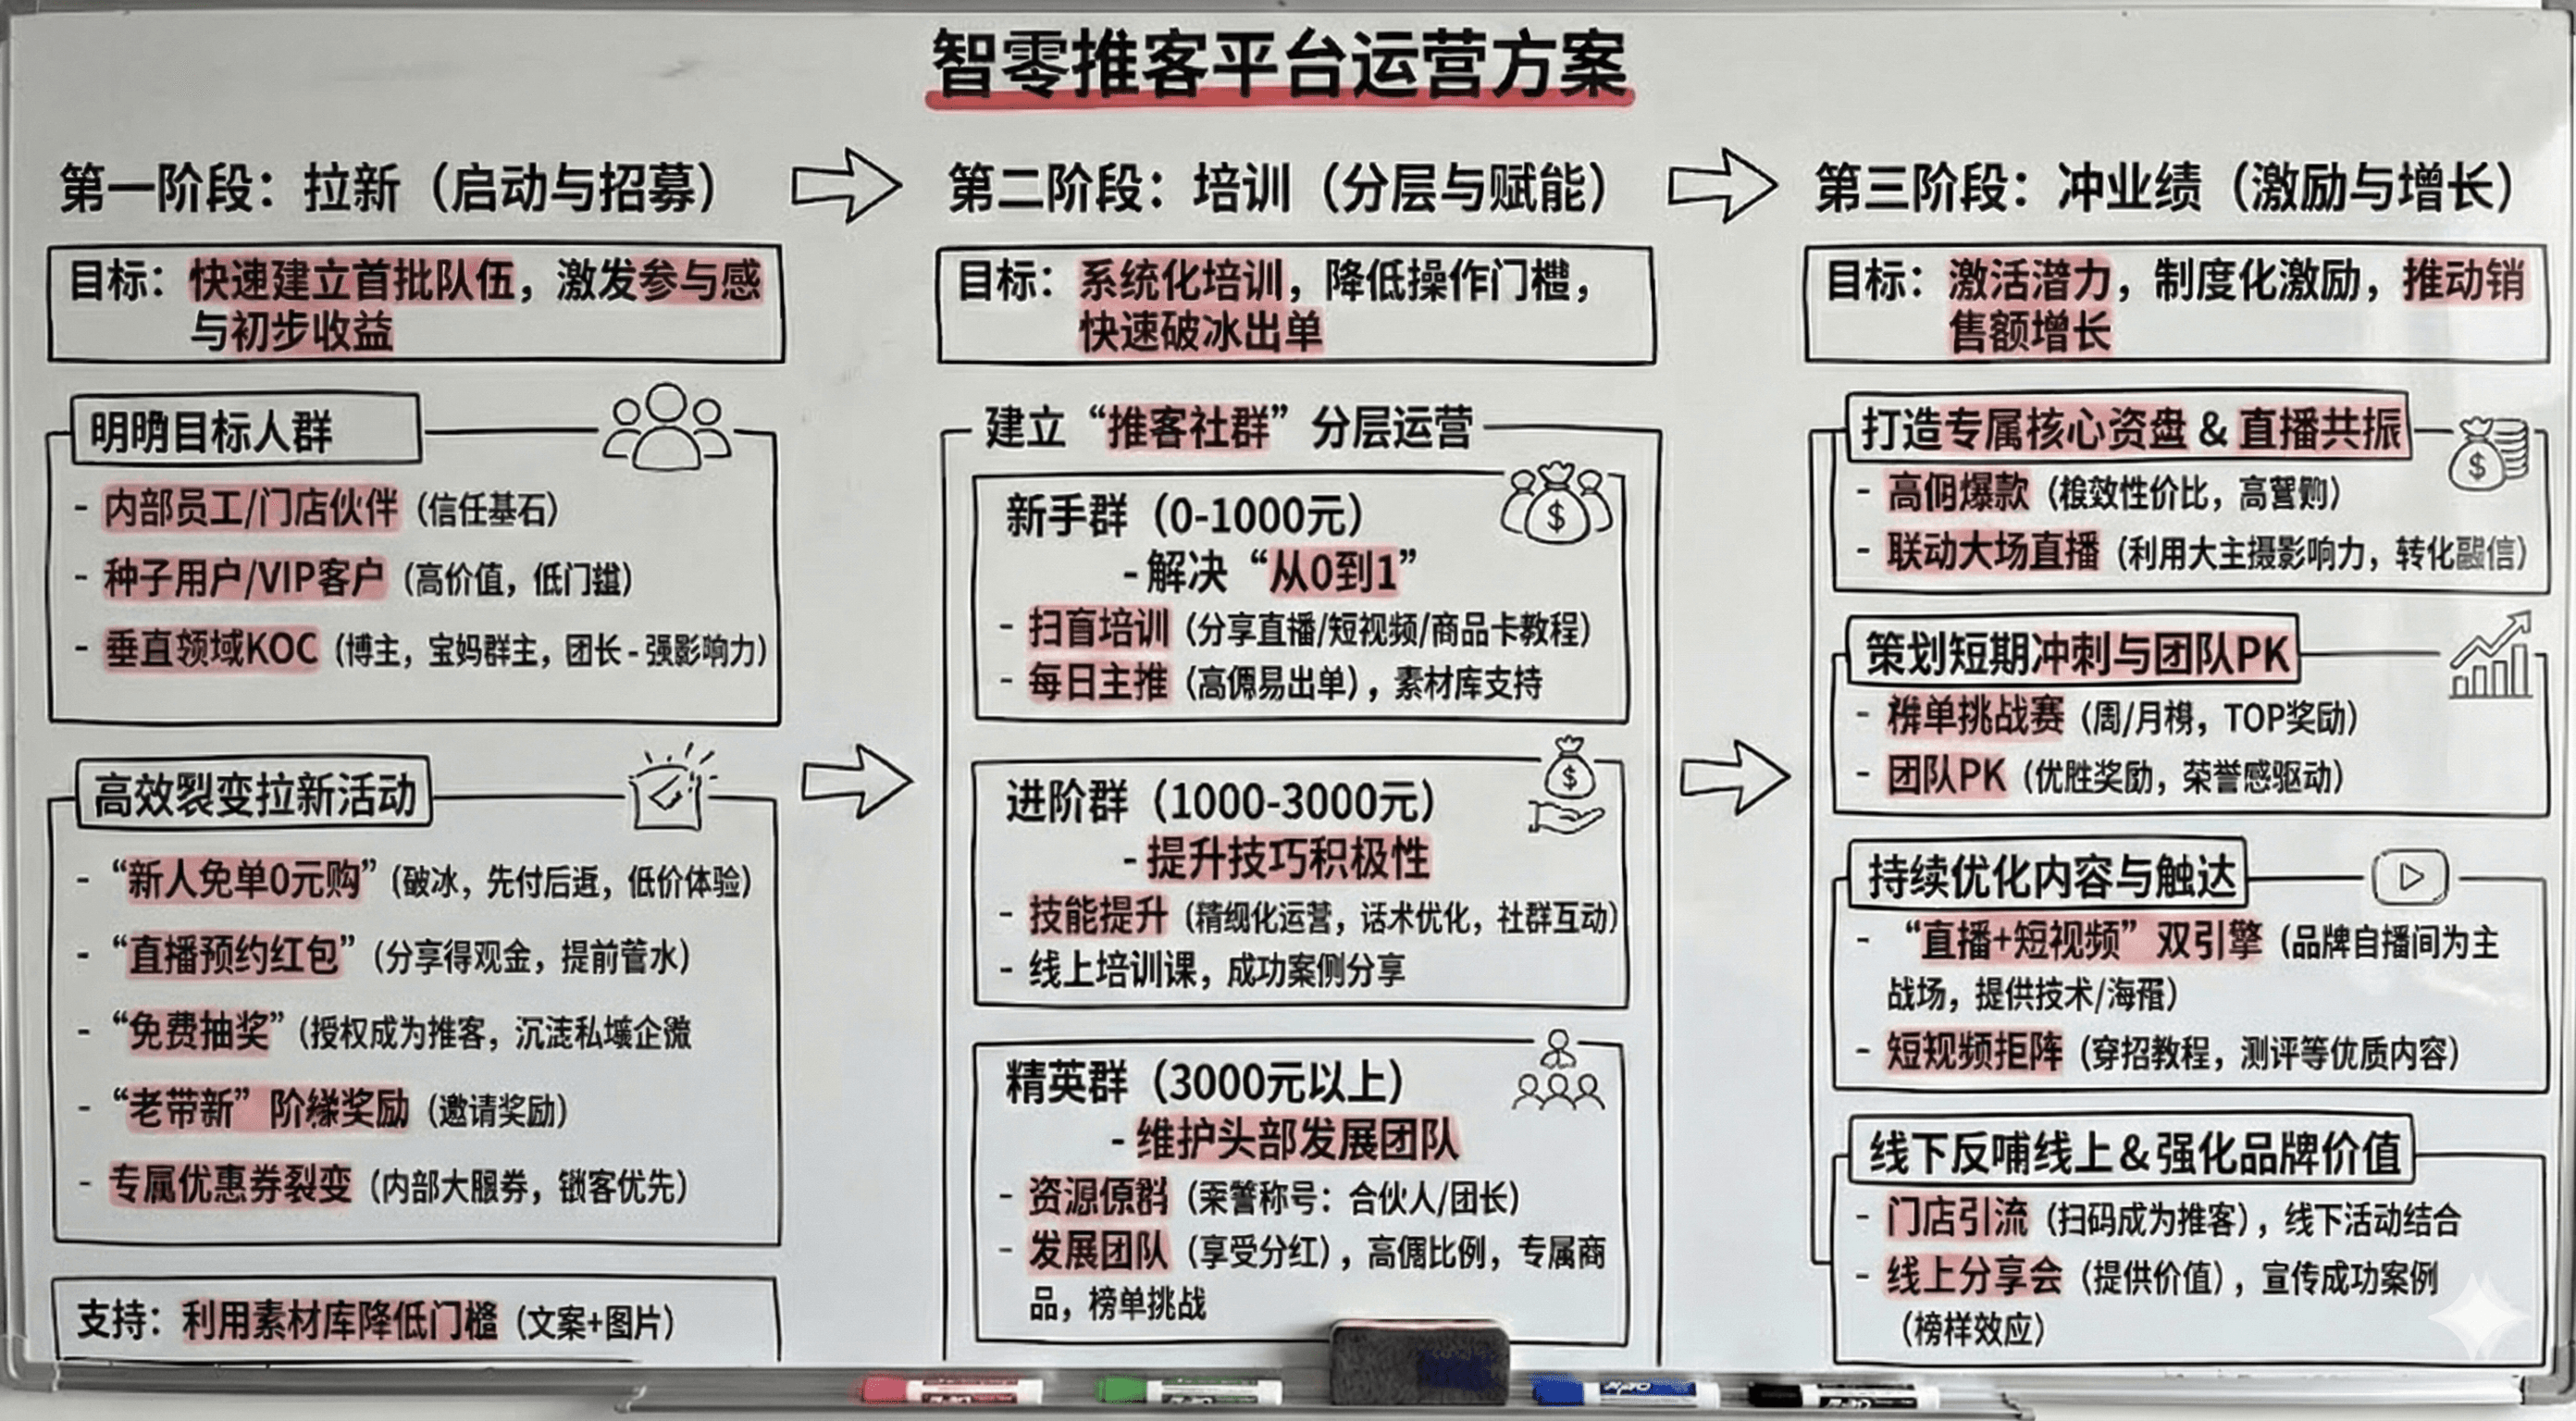 智零推客平台运营方案
第一阶段：拉新（启动与招募）
目标：快速建立首批队伍，激发参与感
与初步收益
目标人群
- 内部员工/门店伙伴（信任基石）
- 种子用户/VIP客户（高价值，低门）
- 垂直领域KOC（博主，宝妈群主，团长 - 强影响力）
高效裂变拉新活动
- “新人免单0元购”（破冰，先付后返，低价体验）
- “直播预约红包”（分享得观金，提前水）
- “免费抽奖”（授权成为推客，沉私域企微
- “老带新”阶奖励（邀请奖励）
- 专属优惠券裂变（内部大服券，客优先）
支持：利用素材库降低门槛（文案+图片）
第二阶段：培训（分层与赋能）
目标：系统化培训，降低操作门槛，
快速破冰出单
建立“推客社群”分层运营
新手群（0-1000元）
- 解决“从0到1”
- 扫盲培训（分享直播/短视频/商品卡教程）
- 每日主推（高易出单），素材库支持
进阶群（1000-3000元）
- 提升技巧积极性
- 技能提升（精细化运营，话术优化，社群互动）
- 线上培训课，成功案例分享
精英群（3000元以上）
- 维护头部发展团队
- 资源（称号：合伙人/团长）
- 发展团队（享受分红），高比例，专属商
品，榜单挑战
第三阶段：冲业绩（激励与增长）
目标：激活潜力，制度化激励，推动销
售额增长
打造专属核心资盘 & 直播共振
- 高爆款（效性价比，高）
- 联动大场直播（利用大主摄影响力，转化信）
策划短期冲刺与团队PK
- 单挑战赛（周/月，TOP奖励）
- 团队PK（优胜奖励，荣誉感驱动）
持续优化内容与触达
- “直播+短视频”双引擎（品牌自播间为主
战场，提供技术/海）
- 短视频拒阵（穿招教程，测评等优质内容）
线下反哺线上 & 强化品牌价值
- 门店引流（扫码成为推客），线下活动结合
- 线上分享会（提供价值），宣传成功案例
（榜样效应）